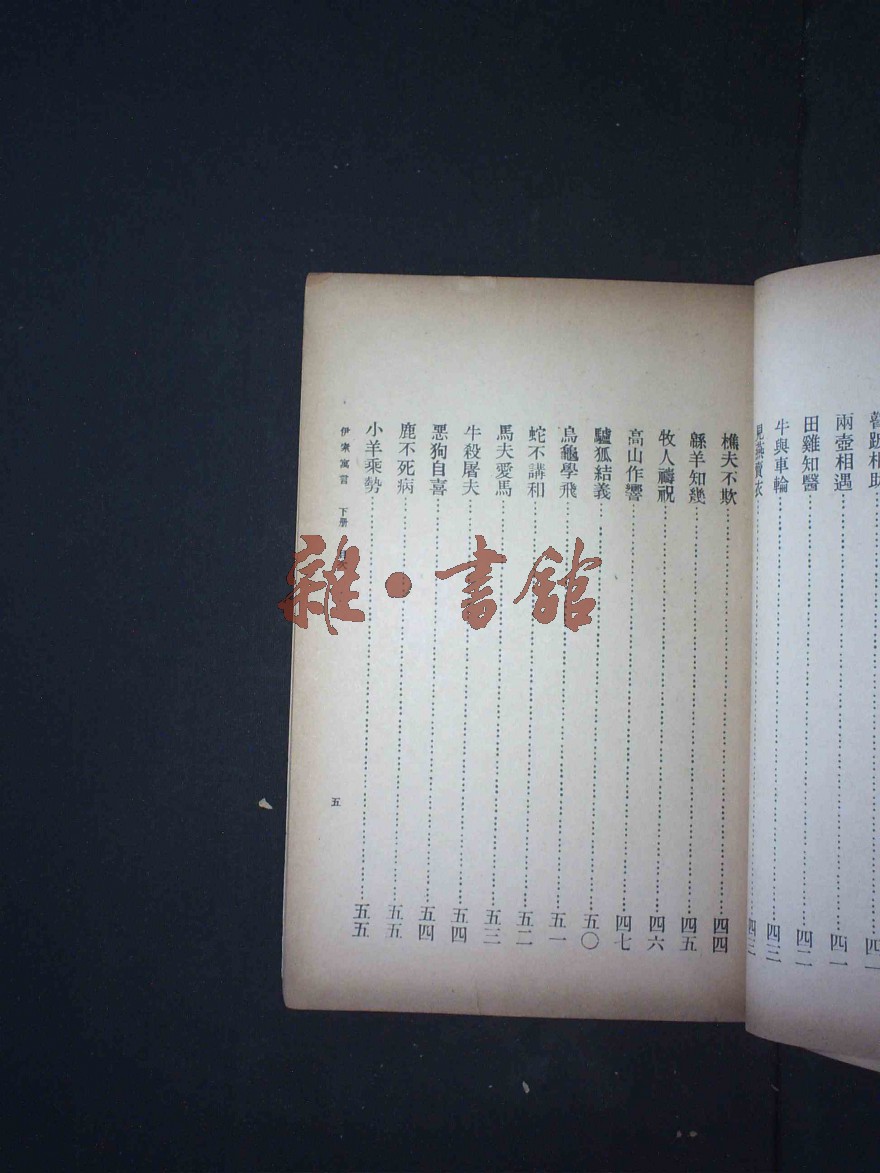 瞽跛相助……四一
兩壺相遇……四一
田雞知醫……四二
牛與車輪……四三
見燕賣衣……四三
樵夫不欺……四四
緜羊知幾……四五
牧人禱祝……四六
高山作響……四七
驢狐結義……五〇
烏龜學飛……五一
蛇不講和……五二
馬夫愛馬……五三
牛殺屠夫……五四
惡狗自喜……五四
鹿不死病……五五
小羊乘勢……五五
伊索寓言 下册 目次
五
雜·書館